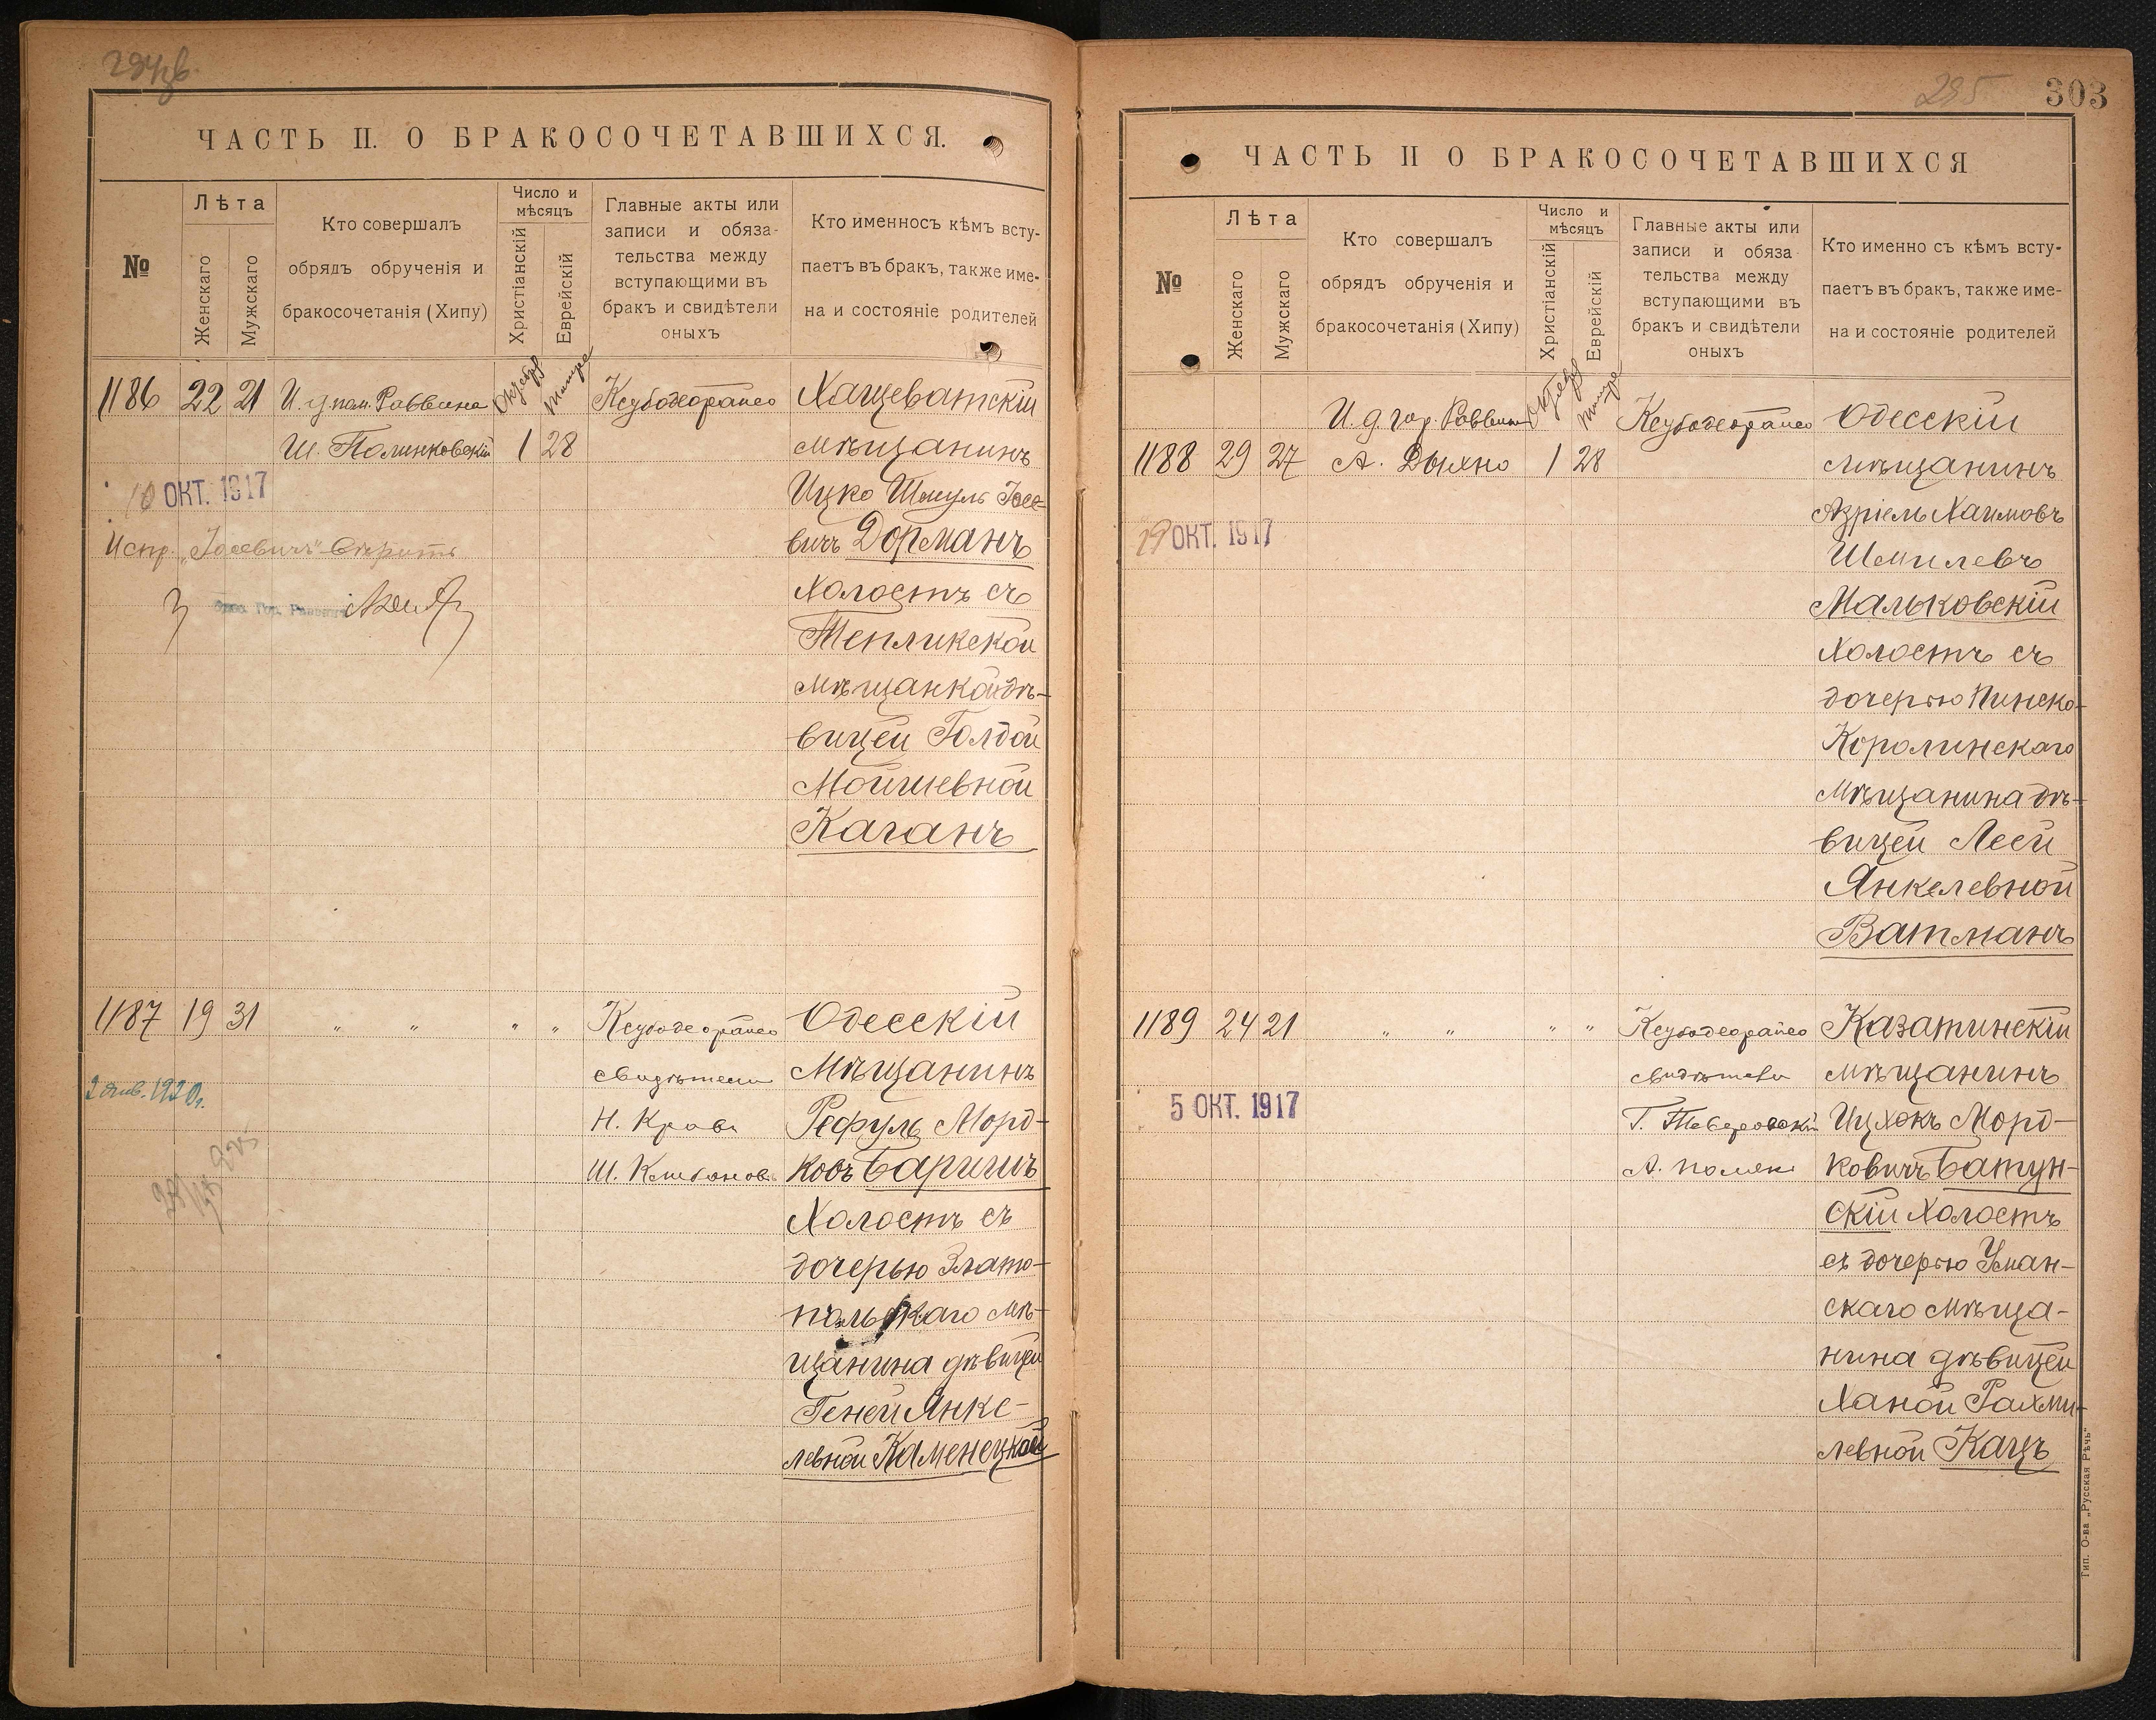 ЧАСТЬ II. О БРАКОСОЧЕТАВШИХСЯ.
№
Лѣта
Женскаго
Мужскаго
Кто совершалъ
обрядъ обрученія и
бракосочетанія (Хипу)
Число и
мѣсяцъ
Христіанскій
Еврейскій
Главные акты или
записи и обяза-
тельства между
вступающими въ
бракъ и свидѣтели
оныхъ
Кто именносъ кѣмъ всту-
паетъ въ бракъ, также име-
на и состояніе родителей
1186 22 21
И. д. пом. Раввина
Ш. Полинковскій
Октябрь
Тишре
1 28
Ксубодеорайсо
Хащеватскій
мѣщанинъ
Ицко Шмуль Іосе-
вичъ Дорманъ
Холостъ съ
Тепликской
мѣщанкой дѣ-
вицей Голдой
Мойшевной
Каганъ
10 ОКТ. 1917
Испр. „Іосевичъ“
1187 19 31
" " " "
Ксубодеорайсо
свидѣтели
Н. Кравъ
Ш. Клибановъ
Одесскій
Мѣщанинъ
Рефуль Морд-
ковъ Баришъ
Холостъ съ
дочерью Злато-
польскаго мѣ-
щанина дѣвицей
Геней Янке-
левной Каменецкой
2 янв. 1920 г.
295
303
ЧАСТЬ II О БРАКОСОЧЕТАВШИХСЯ
№
Лѣта
Женскаго
Мужскаго
Кто совершалъ
обрядъ обрученія и
бракосочетанія (Хипу)
Число и
мѣсяцъ
Христіанскій
Еврейскій
Главные акты или
записи и обяза-
тельства между
вступающими въ
бракъ и свидѣтели
оныхъ
Кто именно съ кѣмъ всту-
паетъ въ бракъ, также име-
на и состояніе родителей
1188 29 27
И. д. гор. Раввина
А. Дыхно
Октябрь
Тишре
1 28
Ксубодеорайсо
Одесскій
мѣщанинъ
Азріель Хаимовъ
Шмилевъ
Мальковскій
Холостъ съ
дочерью Пинско-
Королинскаго
мѣщанина дѣ-
вицей Леей
Янкелевной
Ватманъ
29 ОКТ. 1917
1189 24 21
" " " "
Ксубодеорайсо
свидѣтели
Г. Тверовскій
А. Поляк
Казатинскій
мѣщанинъ
Ицхокъ Морд-
ковичъ Батун-
скій Холостъ
съ дочерью Уман-
скаго мѣща-
нина дѣвицей
Ханой Рахми-
левной Кацъ
5 ОКТ. 1917
Тип. О-ва „Русская Рѣчь“